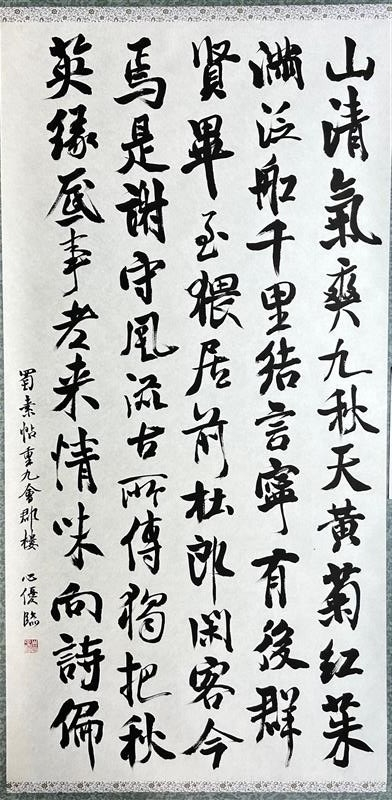 山清氣爽九秋天黃菊紅茱
滿泛舩千里結言寧有後群
賢畢至猥居前杜郎閑客今
焉是謝守風流古所傳獨把秋
英緣底事老来情味向詩偏
蜀素帖重九會郡樓 心優臨